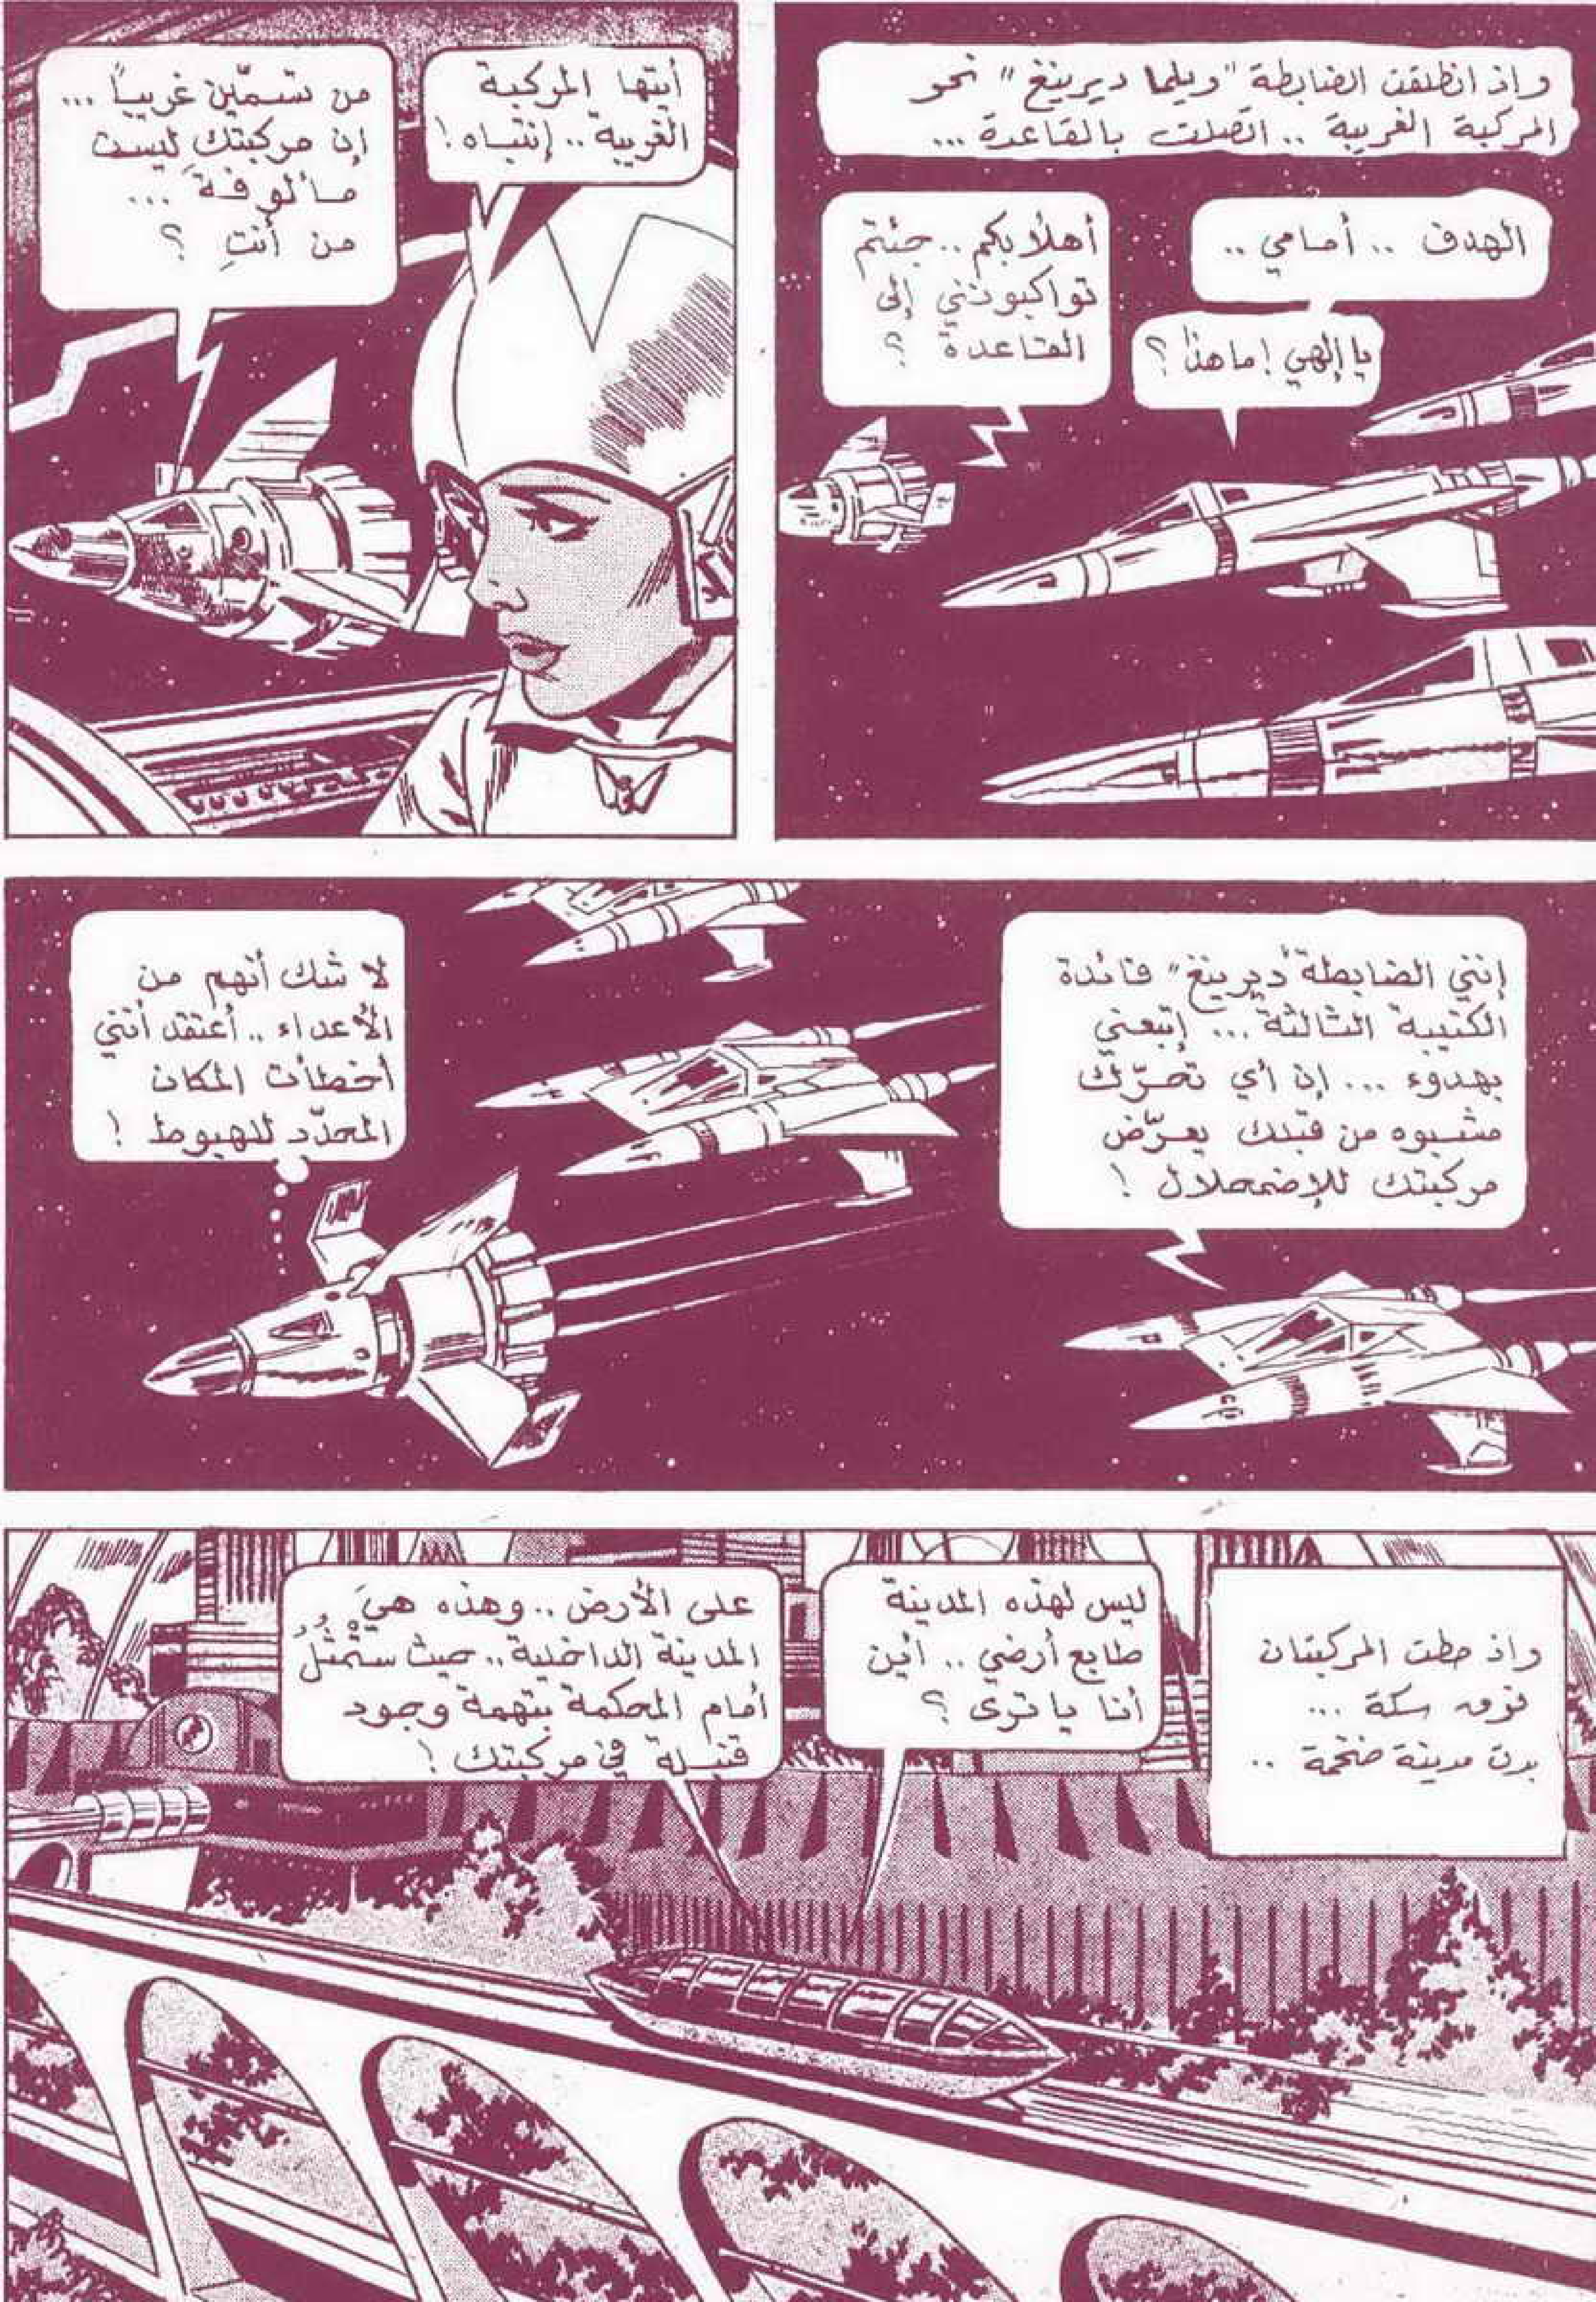 واذ انطلقت الضابطة "ويلما ديرينغ" نحو
المركبة الغريبة .. اتصلت بالقاعدة ...
الهدف .. أمامي ..
يا إلهي ! ما هذا ؟
أهلاً بكم .. جئتم
تواكبونني إلى
القاعدة ؟
أيتها المركبة
الغريبة .. إنتباه !
من تسمّين غريباً ...
إن مركبتكِ ليست
مألوفة ...
من أنتِ ؟
إنني الضابطة "ديرينغ" قائدة
الكتيبة الثالثة ... إتبعني
بهدوء ... إن أي تحرّك
مشبوه من قبلك يعرّض
مركبتك للإضمحلال !
لا شك أنهم من
الأعداء .. أعتقد أنني
أخطأت المكان
المحدّد للهبوط !
واذ حطت المركبتان
فوق سكة ...
بدت مدينة ضخمة ..
ليس لهذه المدينة
طابع أرضي .. أين
أنا يا ترى ؟
على الأرض .. وهذه هيَ
المدينة الداخلية .. حيث ستَمْثُلُ
أمام المحكمة بتهمة وجود
قنبلة في مركبتك !